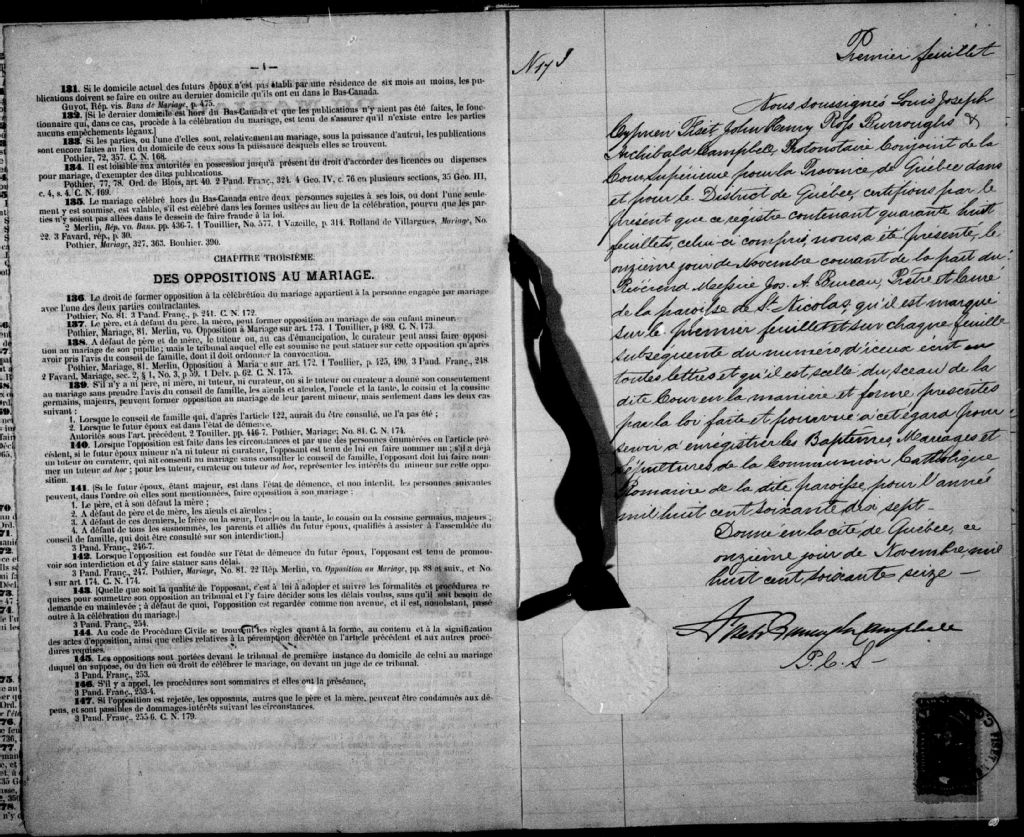 — 4 —
131. Si le domicile actuel des futurs époux n'est pas établi par une résidence de six mois au moins, les pu-
blications doivent se faire en outre au dernier domicile qu'ils ont eu dans le Bas-Canada.
Guyot, Rép. vis. Bans de Mariage, p. 475.
132. [Si le dernier domicile est hors du Bas-Canada et que les publications n'y aient pas été faites, le fonc-
tionnaire qui, dans ce cas, procède à la célébration du mariage, est tenu de s'assurer qu'il n'existe entre les parties
aucuns empêchements légaux.]
133. Si les parties, ou l'une d'elles sont, relativement au mariage, sous la puissance d'autrui, les publications
sont encore faites au lieu du domicile de ceux sous la puissance desquels elles se trouvent.
Pothier, 72, 357. C. N. 168.
134. Il est loisible aux autorités en possession jusqu'à présent du droit d'accorder des licences ou dispenses
pour mariage, d'exempter des dites publications.
Pothier, 77, 78. Ord. de Blois, art. 40. 2 Pand. Franç., 324. 4 Geo. IV, c. 76 en plusieurs sections, 35 Geo. III,
c. 4, s. 4. C. N. 169.
135. Le mariage célébré hors du Bas-Canada entre deux personnes sujettes à ses lois, ou dont l'une seule-
ment y est soumise, est valable, s'il est célébré dans les formes usitées au lieu de la célébration, pourvu que les par-
ties n'y soient pas allées dans le dessein de faire fraude à la loi.
2 Merlin, Rép. vo. Bans. pp. 436-7. 1 Touillier, No. 577. 1 Vazeille, p. 314. Rolland de Villargues, Mariage, No.
22. 3 Favard, rép., p. 30.
Pothier, Mariage, 327, 363. Bouhier. 390.
CHAPITRE TROISIÈME.
DES OPPOSITIONS AU MARIAGE.
136. Le droit de former opposition à la célébration du mariage appartient à la personne engagée par mariage
avec l'une des deux parties contractantes.
Pothier, No. 81. 3 Pand. Franç., p. 241. C. N. 172.
137. Le père, et à défaut du père, la mère, peut former opposition au mariage de son enfant mineur.
Pothier, Mariage, 81. Merlin, vo. Opposition à Mariage sur art. 173. 1 Touillier, p 489. C. N. 173.
138. A défaut de père et de mère, le tuteur ou, au cas d'émancipation, le curateur peut aussi faire opposi-
tion au mariage de son pupille; mais le tribunal auquel elle est soumise ne peut statuer sur cette opposition qu'après
avoir pris l'avis du conseil de famille, dont il doit ordonner la convocation.
Pothier, Mariage, 81. Merlin, Opposition à Mariage sur art. 172. 1 Touillier, p. 125, 490. 3 Pand. Franç., 248.
2 Favard, Mariage, sec. 2, § 1, No. 3, p. 59. 1 Delv. p. 62. C. N. 175.
139. S'il n'y a ni père, ni mère, ni tuteur, ni curateur, ou si le tuteur ou curateur a donné son consentement
au mariage sans prendre l'avis du conseil de famille, les aïeuls et aïeules, l'oncle et la tante, le cousin et la cousine
germains, majeurs, peuvent former opposition au mariage de leur parent mineur, mais seulement dans les deux cas
suivant :
1. Lorsque le conseil de famille qui, d'après l'article 122, aurait du être consulté, ne l'a pas été ;
2. Lorsque le futur époux est dans l'état de démence.
Autorités sous l'art. précédent. 2 Touiller. pp. 446-7. Pothier, Mariage, No. 81. C. N. 174.
140. Lorsque l'opposition est faite dans les circonstances et par une des personnes énumérées en l'article pré-
cédent, si le futur époux mineur n'a ni tuteur ni curateur, l'opposant est tenu de lui en faire nommer un; s'il a déjà
un tuteur ou curateur, qui ait consenti au mariage sans consulter le conseil de famille, l'opposant doit lui faire nom-
mer un tuteur ad hoc ; pour les tuteur, curateur ou tuteur ad hoc, représenter les intérêts du mineur sur cette oppo-
sition.
141. [Si le futur époux, étant majeur, est dans l'état de démence, et non interdit, les personnes suivantes
peuvent, dans l'ordre où elles sont mentionnées, faire opposition à son mariage :
1. Le père, et à son défaut la mère ;
2. A défaut de père et de mère, les aïeuls et aïeules ;
3. A défaut de ces derniers, le frère ou la sœur, l'oncle ou la tante, le cousin ou la cousine germains, majeurs ;
4. A défaut de tous les susnommés, les parents et alliés du futur époux, qualifiés à assister à l'assemblée du
conseil de famille, qui doit être consulté sur son interdiction.]
3 Pand. Franç., 246-7.
142. Lorsque l'opposition est fondée sur l'état de démence du futur époux, l'opposant est tenu de promou-
voir son interdiction et d'y faire statuer sans délai.
3 Pand. Franç., 247. Pothier, Mariage, No. 81. 22 Rép. Merlin, vo. Opposition au Mariage, pp. 88 et suiv., et No.
4 sur art. 174. C. N. 174.
143. [Quelque soit la qualité de l'opposant, c'est à lui à adopter et suivre les formalités et procédures re-
quises pour soumettre son opposition au tribunal et l'y faire décider sous les délais voulus, sans qu'il soit besoin de
demande en mainlevée ; à défaut de quoi, l'opposition est regardée comme non avenue, et il est, nonobstant, passé
outre à la célébration du mariage.]
3 Pand. Franç., 254.
144. Au code de Procédure Civile se trouvent les règles quant à la forme, au contenu et à la signification
des actes d'opposition, ainsi que celles relatives à la péremption décrétée en l'article précédent et aux autres procé-
dures requises.
145. Les oppositions sont portées devant le tribunal de première instance du domicile de celui au mariage
duquel on s'oppose, ou du lieu où droit de célébrer le mariage, ou devant un juge de ce tribunal.
3 Pand. Franç., 253.
146. S'il y a appel, les procédures sont sommaires et elles ont la préséance.
3 Pand. Franç., 253-4.
147. Si l'opposition est rejetée, les opposants, autres que le père et la mère, peuvent être condamnés aux dé-
pens, et sont passibles de dommages-intérêts suivant les circonstances.
3 Pand. Franç., 255-6. C. N. 179.
Premier feuillet
Nous soussignés Louis Joseph
Cyprien Fiset, John Henry Ross Burroughs &
Archibald Campbell, Protonotaire Conjoint de la
Cour Supérieure pour la Province de Québec dans
et pour le District de Québec, certifions par le
présent que ce registre contenant quarante huit
feuillets, celui-ci compris, nous a été présenté, le
onzième jour de Novembre courant de la part du
Révérend Messire Jos. A. Bureau, Prêtre et Curé
de la paroisse de St. Nicolas, qu'il est marqué
sur le premier feuillet et sur chaque feuille
subséquente du numéro d'iceux écrit en
toutes lettres et qu'il est scellé du sceau de la
dite Cour en la manière et forme prescrites
par la loi faite et pourvue à cet égard pour
servir à enregistrer les Baptêmes, Mariages et
Sépultures de la Communion Catholique
Romaine de la dite paroisse pour l'année
mil huit cent soixante dix sept.
Donné en la cité de Québec, ce
onzième jour de Novembre mil
huit cent soixante seize —
P. C. S.